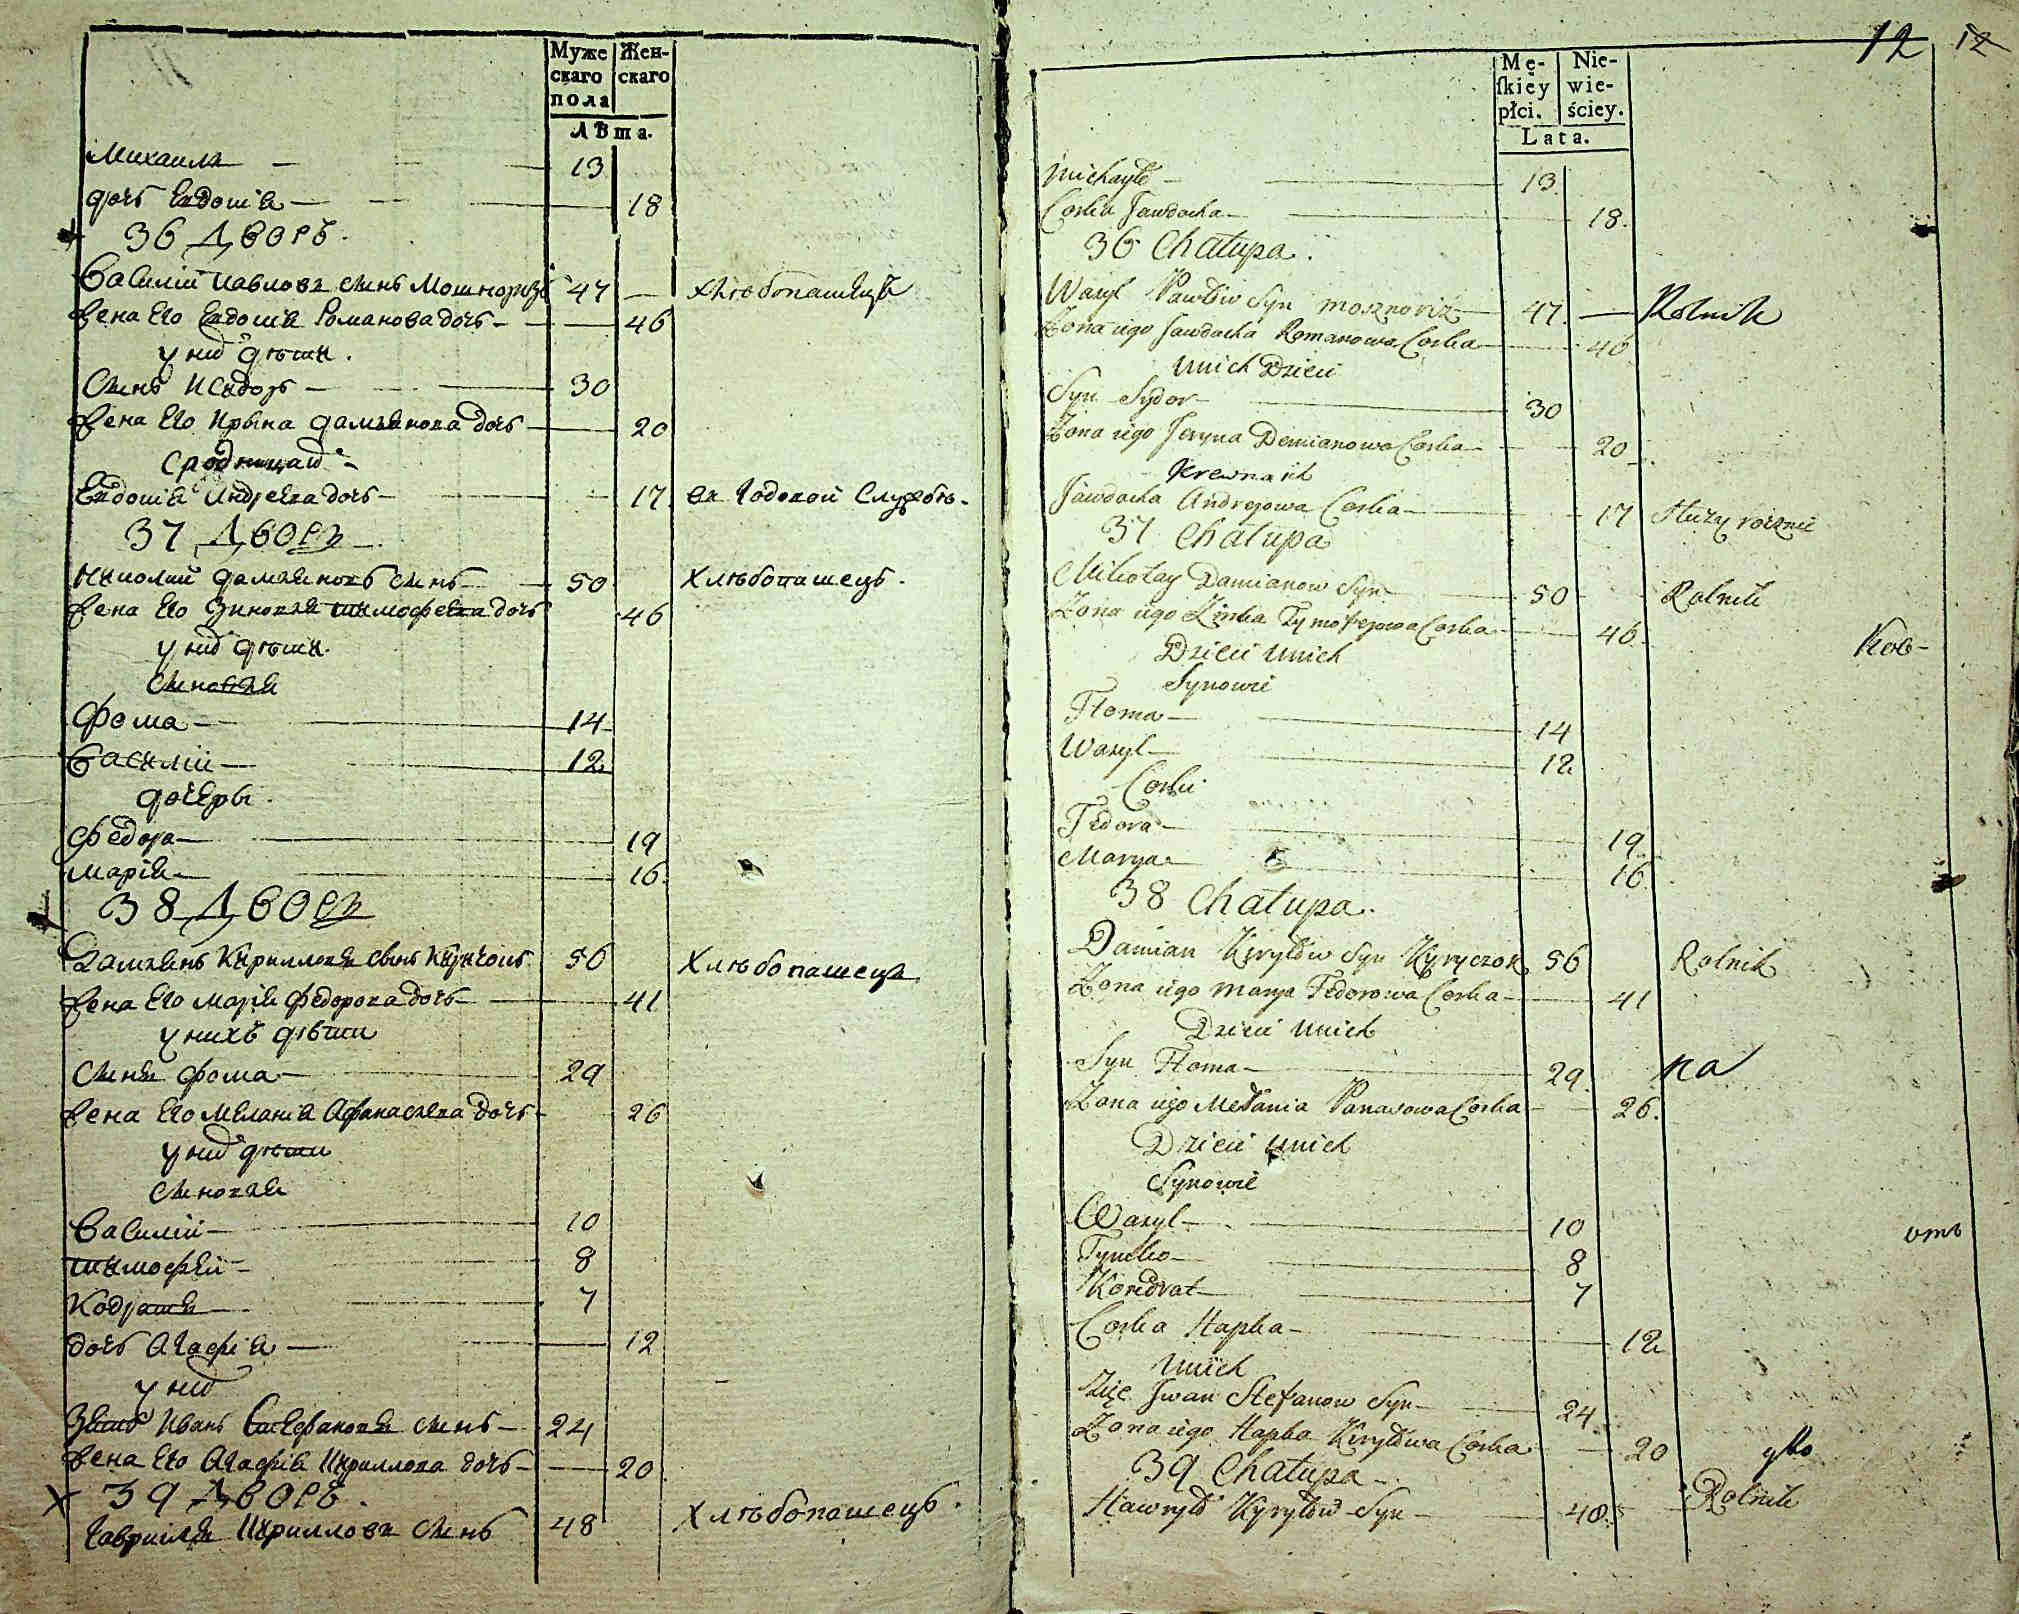 Муже Жен-
скаго скаго
пола
Лѣта.
Михаилъ 13
дочь Евдокія 18
36 Дворъ.
Василій Павловъ сынъ Мошноризъ 47 — Хлѣбопашецъ
Жена Его Евдокія Романова дочь — 46
у них дѣти.
Сынъ Исидоръ — 30
Жена Его Ирына Дамянова дочь — 20
Сродница их
Евдокія Андреева дочь — 17 въ Годовой Службѣ.
37 Дворъ
Николай Дамяновъ сынъ 50 Хлѣбопашецъ.
Жена Его Зиновія Тимофеева дочь 46
у них дѣти.
Сыновья
Фома — 14
Василій — 12
дочеры.
Федора — 19
Марія — 16
38 Дворъ
Дамянъ Кирилловъ сынъ Киричокъ 56 Хлѣбопашецъ
Жена Его Марія Федорова дочь — 41
у нихъ дѣти
Сынъ Фома — 29
Жена Его Меланія Афанасьева дочь — 26
у них дѣти
Сыновья
Василій — 10
Тимофей — 8
Кодратъ 7
дочь Агафія — 12
у них
Зять Иванъ Стефановъ сынъ — 24
Жена Его Агафія Кириллова дочь — 20
39 Дворъ.
Гавриилъ Кирилловъ сынъ 48 Хлѣбопашецъ.
12 12
Mę- Nie-
ſkiey wie-
płci. ściey.
Lata.
Michayło — 13
Corka Jawdocha — 18.
36 Chałupa.
Wasyl Pawłow Syn Mosznoriz 47. — Rolnik
Zona iego Jawdocha Romanowa Corka — 46
Unich Dzieci
Syn Sydor — 30
Zona iego Jeryna Demianowa Corka — 20
Krewna ich
Jawdocha Andrejowa Corka — 17 Służy rocznie
37 Chałupa
Mikołay Damianow Syn 50 Rolnik
Zona iego Zinka Tymofejowa Corka — 46
Kob-
Dzieci Unich
Synowie
Floma — 14
Wasyl — 12
Corki
Fedora — 19
Marya — 16
38 Chałupa.
Damian Kiryłow Syn Kyryczok 56 Rolnik
Zona iego Marya Fedorowa Corka — 41
Dzieci Unich
Syn Floma — 29. на
Zona iego Mełania Panasowa Corka — 26.
Dzieci Unich
Synowie
Wasyl — 10
отъ
Tymko — 8
Kondrat — 7
Corka Hapka — 12
Unich
Zięc Jwan Stefanow Syn — 24
Zona iego Hapka Kiryłowa Corka — 20
39 Chałupa
Hawryło Kyryłow Syn — 48 Rolnik